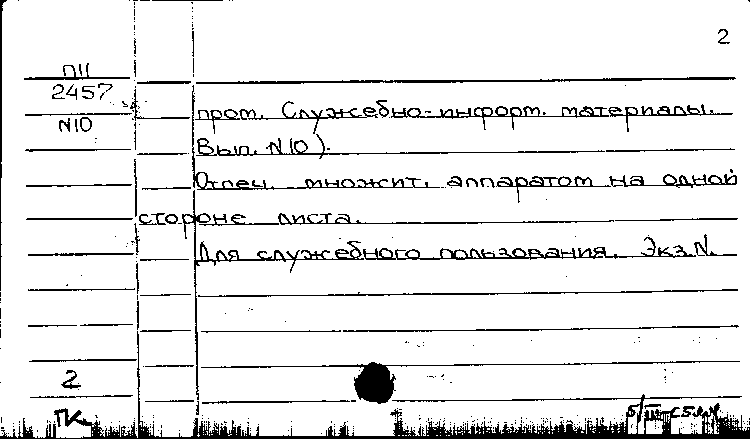 2
П11
2457
N10
пром. Служебно-информ. материалы.
Вып. N10).
Отпеч. множит. аппаратом на одной
стороне листа.
Для служебного пользования. Экз.N.
2
ГК